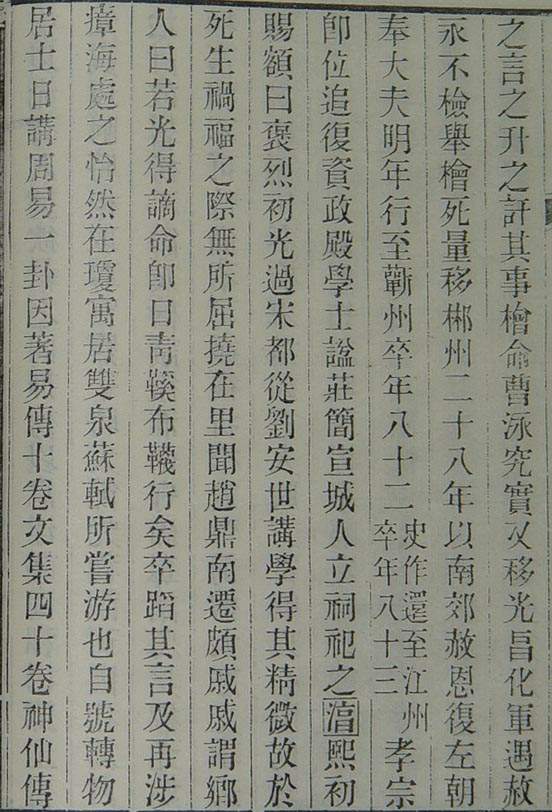 之言之升之訐其事檜侖曹泳究實又移光昌化軍遇赦
永不檢舉檜死量移郴州二十八年以南郊赦恩復左朝
奉大夫明年行至蘄州卒年八十二史作還至江州卒年八十三孝宗
卽位追復資政殿學士諡莊簡宣城人立祠祀之淳熙初
賜額曰褒烈初光過宋都從劉安世講學得其精微故於
死生禍福之際無所屈撓在里聞趙鼎南遷頗戚戚謂鄉
人曰若光得謫命卽日靑鞵布韈行矣卒蹈其言及再涉
瘴海處之怡然在瓊寓居雙泉蘇軾所嘗游也自號轉物
居士日講周易一卦因著易傳十卷文集四十卷神仙傳